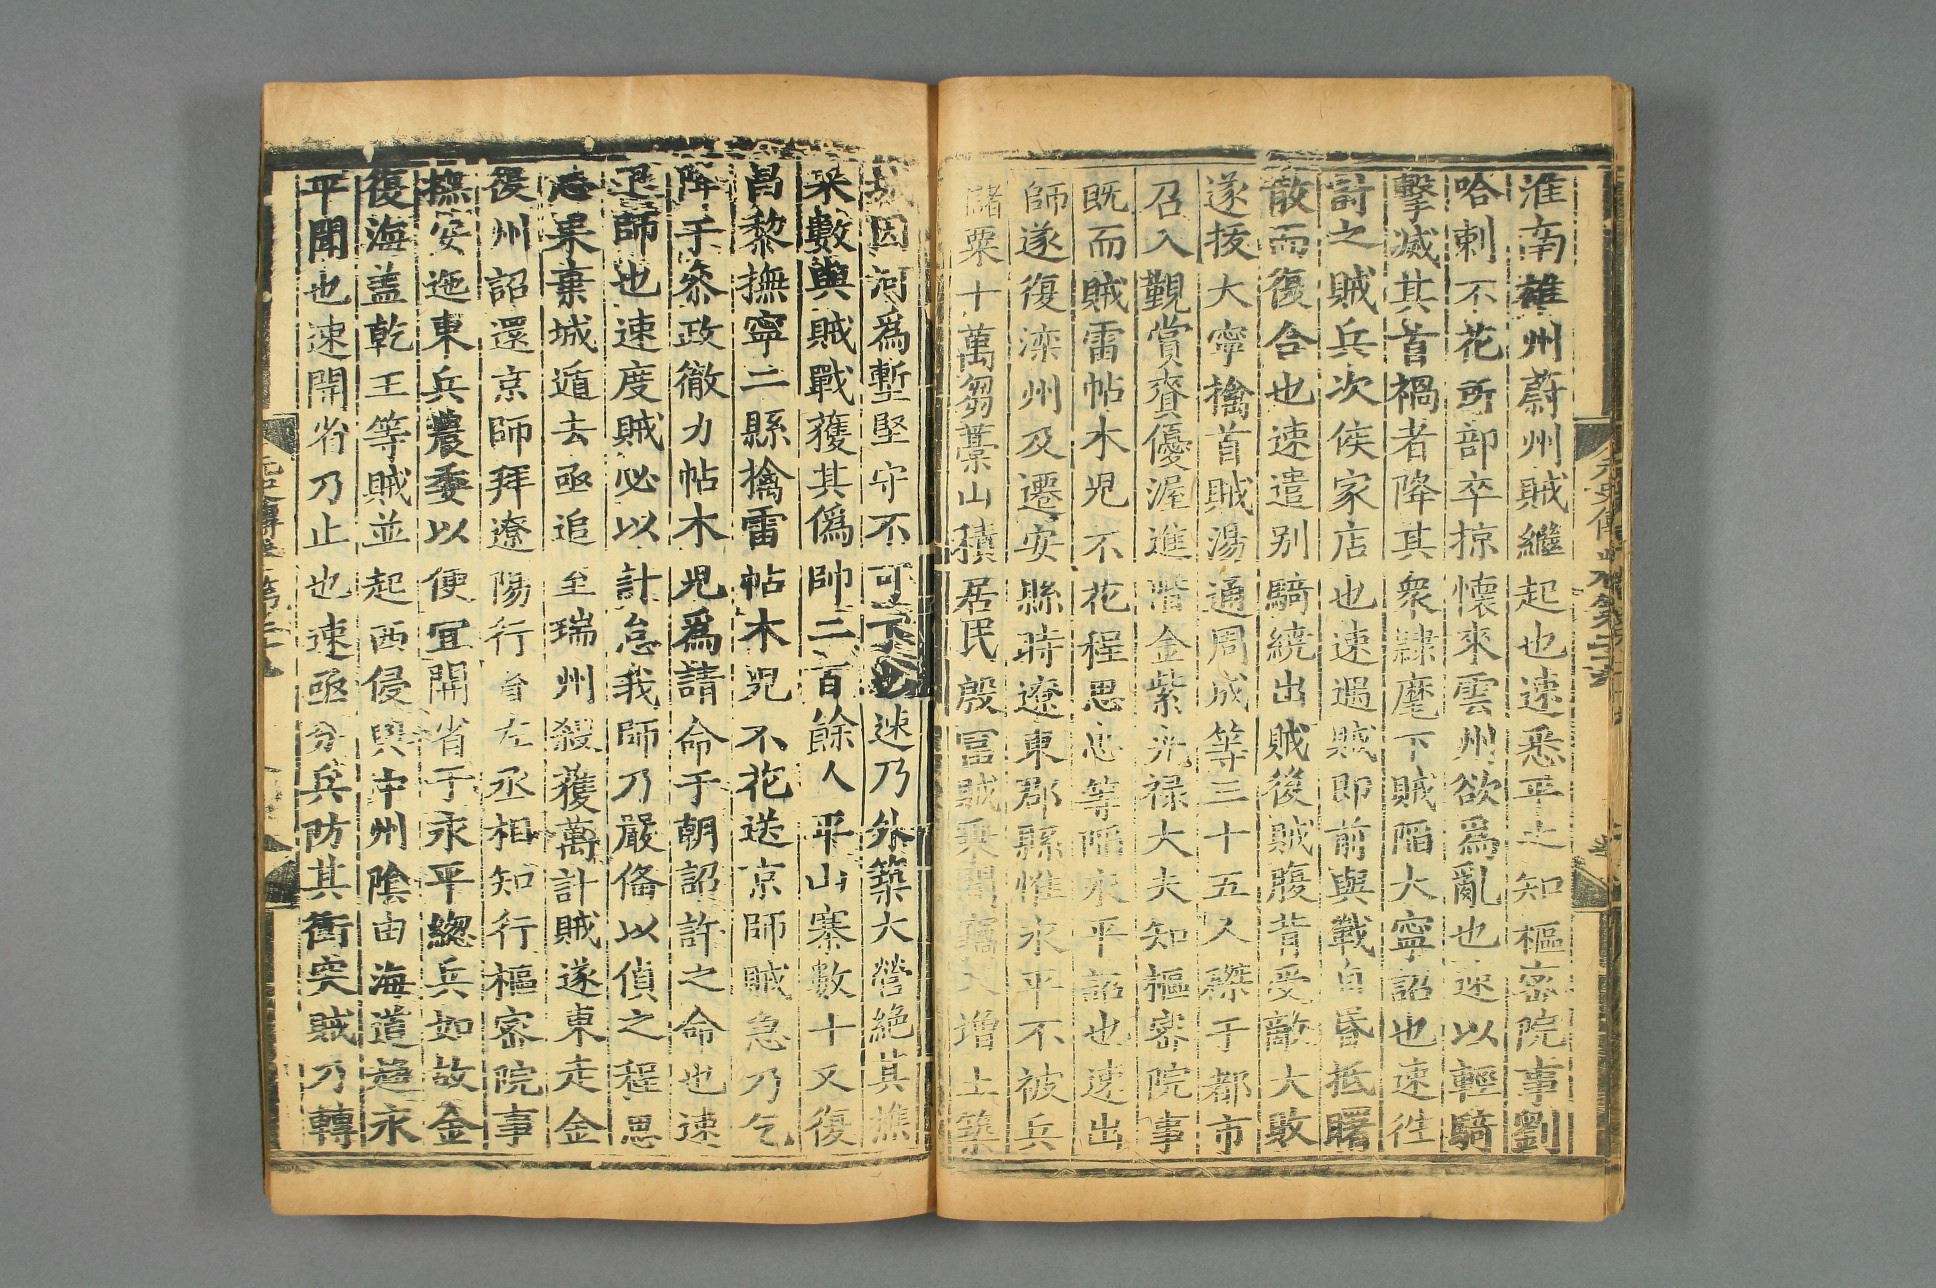 淮南雄州蔚州賊繼起也速悉平之知樞密院事劉
哈剌不花所部卒掠懷來雲州欲爲亂也速以輕騎
擊滅其首禍者降其衆隷麾下賊陷大寧詔也速往
討之賊兵次侯家店也速遇賊即前與戰自昏抵曙
散而復合也速遣别騎繞出賊後賊腹背受敵大敗
遂拔大寧擒首賊湯通周成等三十五人磔于都市
召入覲賞賚優渥進階金紫光禄大夫知樞密院事
既而賊雷帖木兒不花程思忠等陷永平詔也速出
師遂復灤州及遷安縣時遼東郡縣惟永平不被兵
儲粟十萬芻藁山積居民殷富賊乘間竊入增土築
城因河爲塹堅守不可下也速乃外築大營絶其樵
采數與賊戰獲其僞帥二百餘人平山寨數十又復
昌黎撫寧二縣擒雷帖木兒不花送京師賊急乃乞
降于叅政徹力帖木兒爲請命于朝詔許之命也速
退師也速度賊必以計怠我師乃嚴備以偵之程思
忠果棄城遁去亟追至瑞州殺獲萬計賊遂東走金
復州詔還京師拜遼陽行省左丞相知行樞密院事
撫安迤東兵農委以便宜開省于永平緫兵如故金
復海盖乾王等賊並起西侵興中州陰由海道趨永
平聞也速開省乃止也速亟分兵防其衝突賊乃轉